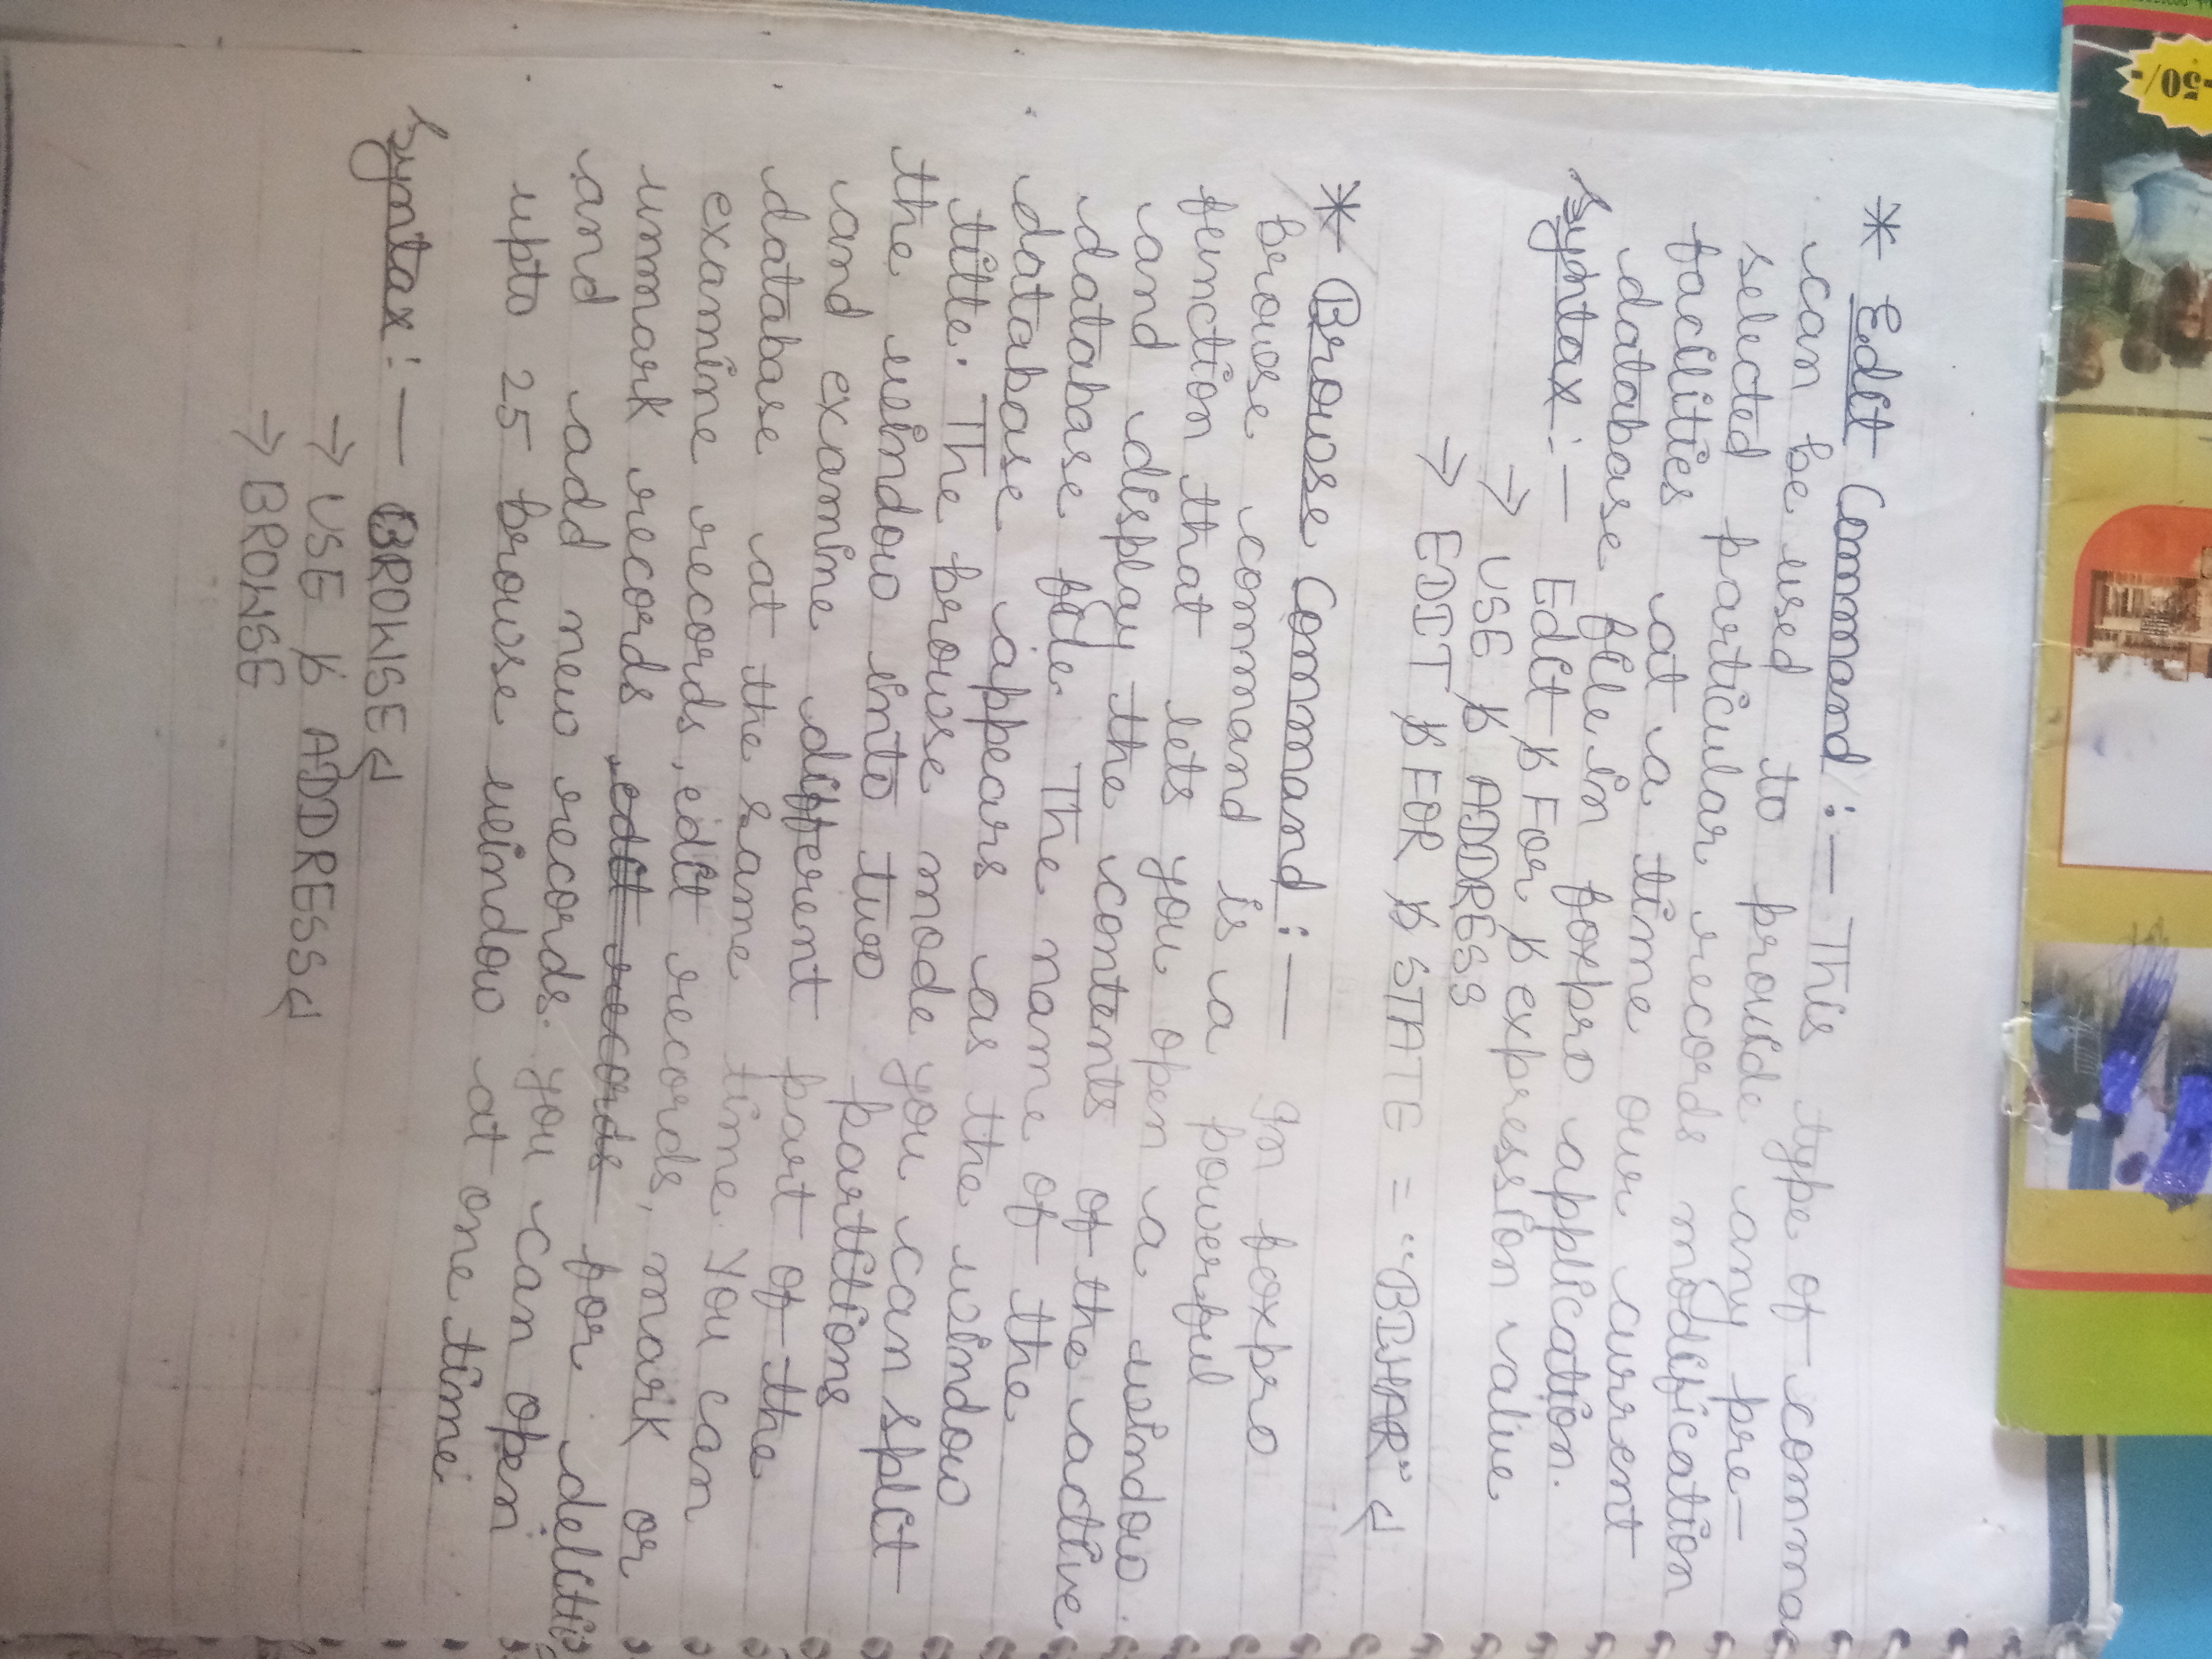 * Edit Command :- This type of comma
can be used to provide any pre-
selected particular records modification
facilities at a time our current
database file in foxpro application.
Syntax :- Edit ␢ For ␢ expression value
→ USE ␢ ADDRESS
→ EDIT ␢ FOR ␢ STATE = "BIHAR"
* Browse Command :- In foxpro
browse command is a powerful
function that lets you open a window
and display the contents of the active
database file. The name of the
database appears as the window
title. The browse mode you can split
the window into two partitions
and examine different part of the
database at the same time. You can
examine records, edit records, mark or
unmark records, edit records for deletio
and add new records. you can open
upto 25 browse window at one time.
Syntax :- BROWSE
→ USE ␢ ADDRESS
→ BROWSE
50/-